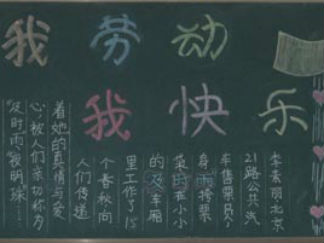 我劳动
我快乐
李素丽北京
21路公共汽
车售票员,
身挎票
在小小
的车厢
里工作了15
个春秋,向
人们传递
着她的真情与爱
心,被人们亲切称为
"及时雨""夜明珠"……